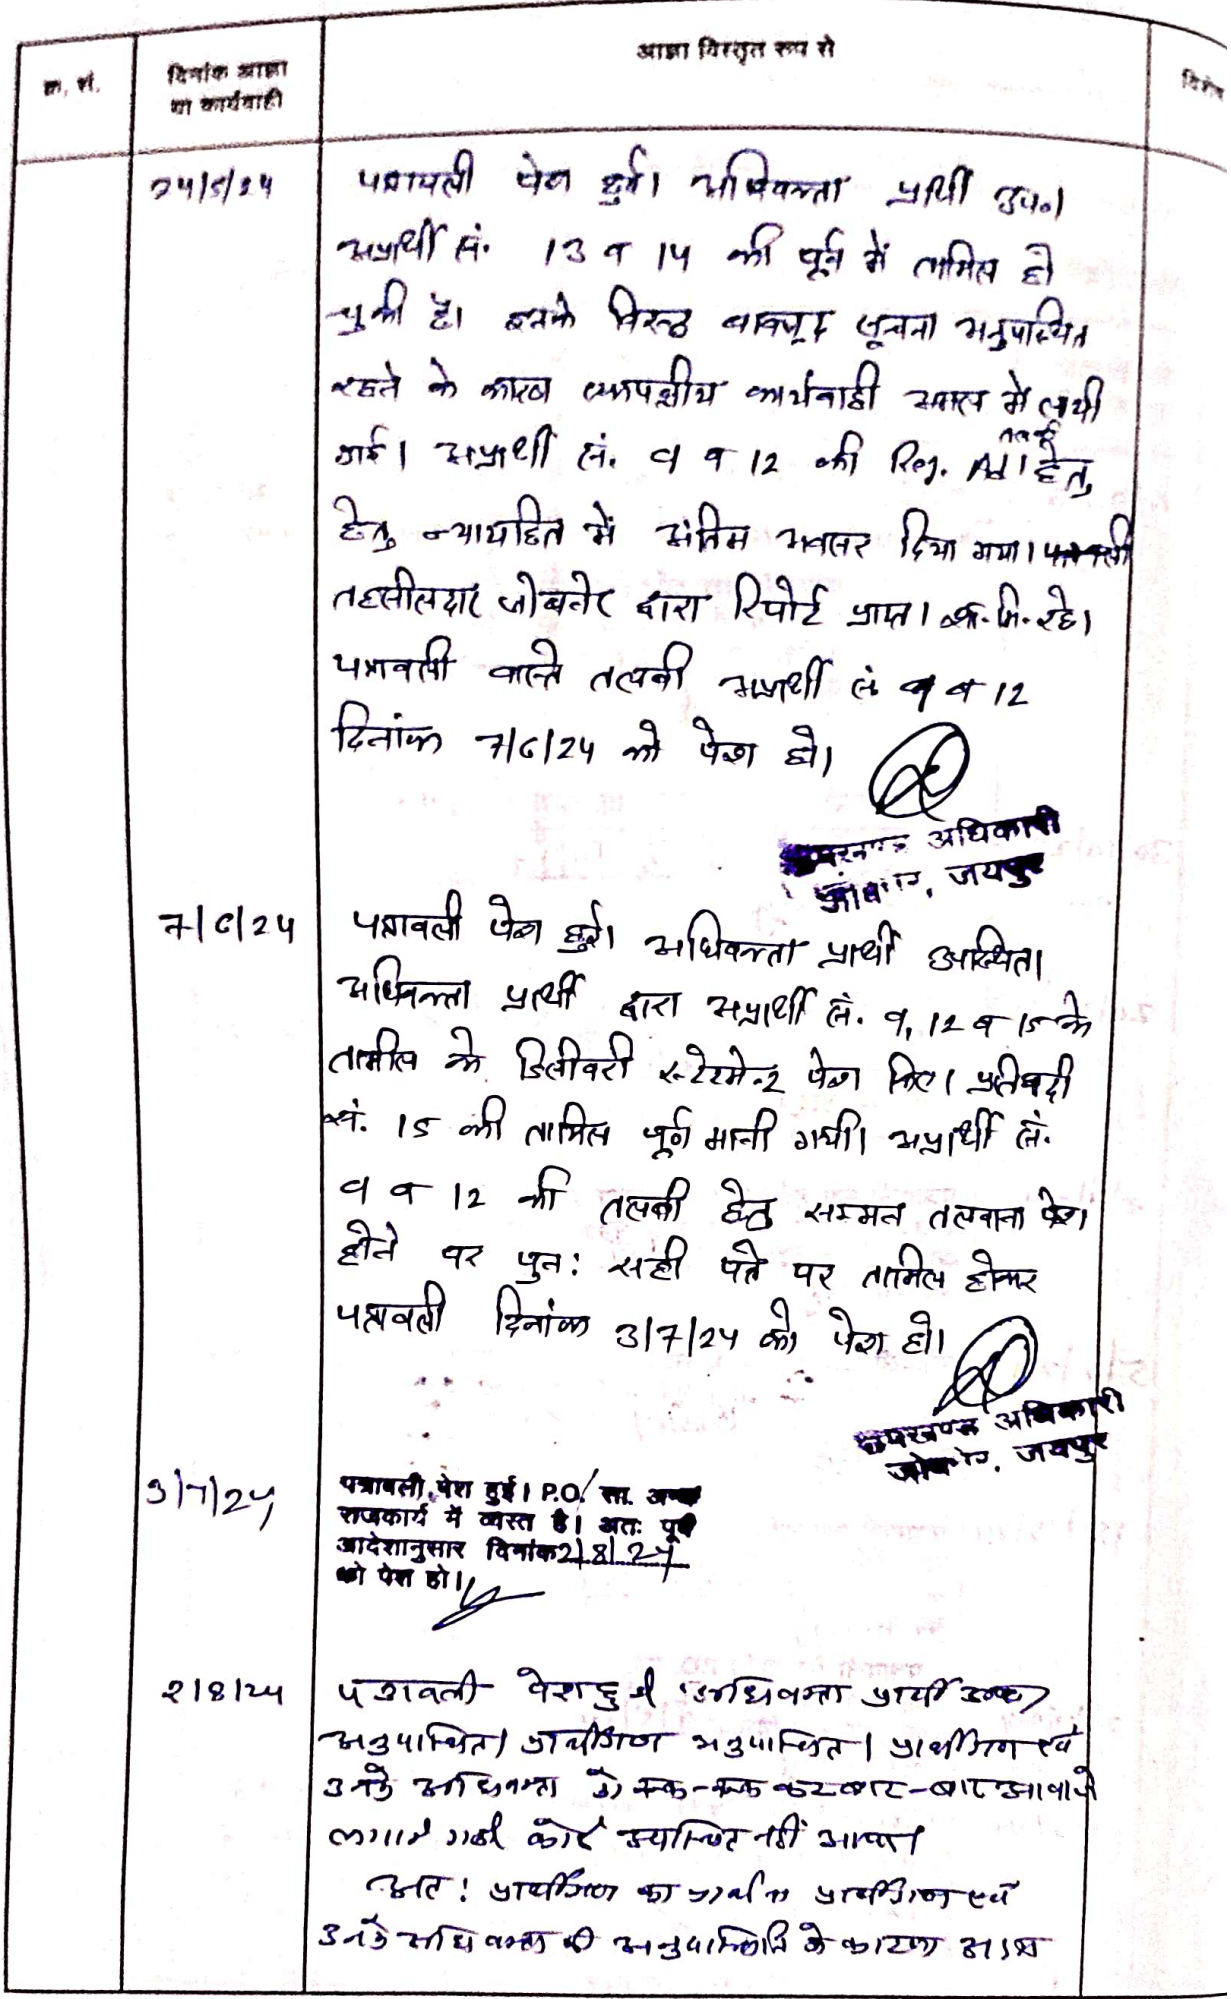 क्र. सं.
दिनांक आज्ञा
या कार्यवाही
आज्ञा विस्तृत रूप से
विशेष
24/5/24
पत्रावली पेश हुई। अधिवक्ता प्रार्थी उप०।
अप्रार्थी सं. 13 व 14 की पूर्व में तामिल हो
चुकी है। इनके विरुद्ध बावजूद सूचना अनुपस्थित
रहने के कारण एकपक्षीय कार्यवाही अमल में लायी
गई। अप्रार्थी सं. 9 व 12 की Reg. AD तलबी हेतु
हेतु न्यायहित में अंतिम अवसर दिया गया।
तहसीलदार जोबनेर द्वारा रिपोर्ट प्राप्त। शा.मि. रहे।
पत्रावली वास्ते तलबी अप्रार्थी सं 9 व 12
दिनांक 7/6/24 को पेश हो।
उपखण्ड अधिकारी
जोबनेर, जयपुर
7/6/24
पत्रावली पेश हुई। अधिवक्ता प्रार्थी उपस्थित।
अधिवक्ता प्रार्थी द्वारा अप्रार्थी सं. 9, 12 व 15 के
तामील के डिलीवरी स्टेटमेन्ट पेश किए। प्रतिवादी
सं. 15 की तामिल पूर्ण मानी गयी। अप्रार्थी सं.
9 व 12 की तलबी हेतु सम्मन तलवाना पेश
होने पर पुन: सही पते पर तामिल होकर
पत्रावली दिनांक 3/7/24 को पेश हो।
उपखण्ड अधिकारी
जोबनेर, जयपुर
3/7/24
पत्रावली पेश हुई। P.O. सा. अन्य
राजकार्य में व्यस्त है। अतः पूर्व
आदेशानुसार दिनांक 2/8/24
को पेश हो।
2/8/24
पत्रावली पेश हुई अधिवक्ता प्रार्थी
अनुपस्थित। प्रार्थीगण अनुपस्थित। प्रार्थीगण एवं
उनके अधिवक्ता को रूक-रूक कर बार-बार आवाजे
लगाने गई कोई उपस्थित नहीं आया।
अत: प्रार्थीगण का प्रार्थीगण एवं
उनके अधिवक्ता की अनुपस्थिति के कारण